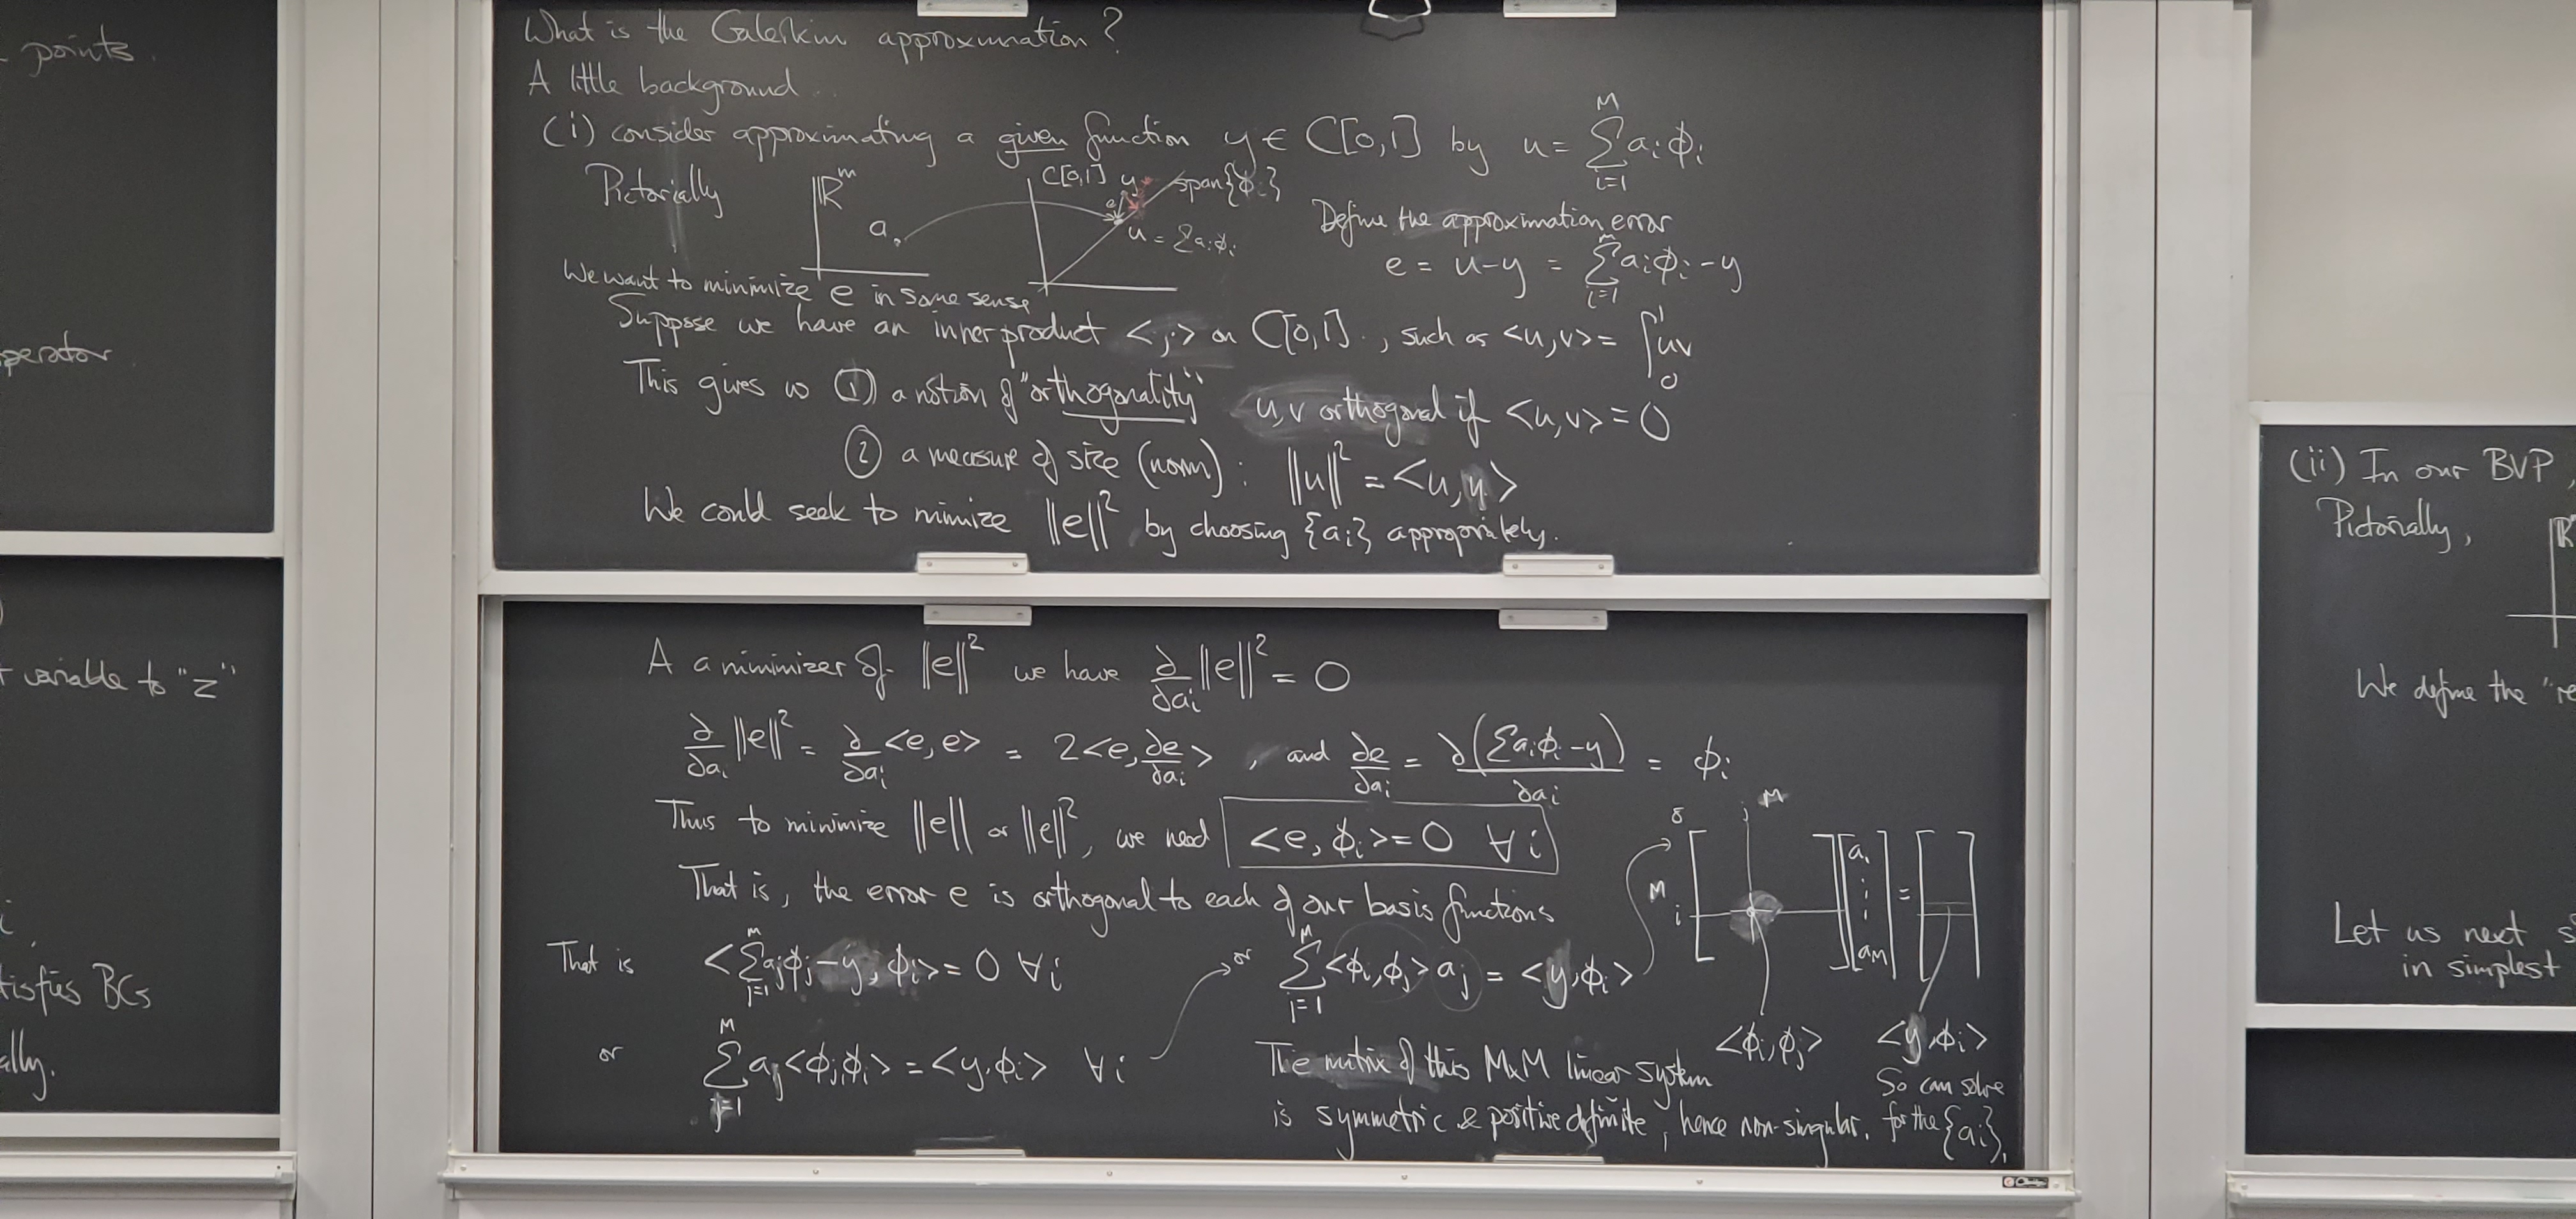 points.
perator
variable to "z"
i
tisfies BCs
ally.
What is the Galerkin approximation?
A little background...
(i) consider approximating a given function y ∈ C[0,1] by u = \sum_{i=1}^{M} a_i φ_i
Pictorially
ℝ^m
a
C[0,1]
y
e
span{φ_i}
u = Σa_iφ_i
Define the approximation error
e = u-y = \sum_{i=1}^{M} a_i φ_i - y
We want to minimize e in some sense
Suppose we have an inner product <·,·> on C[0,1]., such as <u,v> = \int_0^1 uv
This gives us ① a notion of "orthogonality" u,v orthogonal if <u,v> = 0
② a measure of size (norm): ||u||^2 = <u,u>
We could seek to mimize ||e||^2 by choosing {a_i} appropriately.
A a minimizer of ||e||^2 we have ∂/∂a_i ||e||^2 = 0
∂/∂a_i ||e||^2 = ∂/∂a_i <e,e> = 2<e, ∂e/∂a_i>, and ∂e/∂a_i = ∂(Σa_iφ_i - y)/∂a_i = φ_i
Thus to minimize ||e|| or ||e||^2, we need <e, φ_i> = 0 ∀i
That is, the error e is orthogonal to each of our basis functions
That is <\sum_{j=1}^{M} a_jφ_j - y, φ_i> = 0 ∀i
or \sum_{j=1}^{M} a_j<φ_j,φ_i> = <y,φ_i> ∀i
or \sum_{j=1}^{M} <φ_i,φ_j> a_j = <y,φ_i>
j M
M
i
a_1
⋮
a_M
=
<φ_i,φ_j>
<y,φ_i>
The matrix of this M×M linear system
is symmetric & positive definite, hence non-singular.
So can solve
for the {a_i},
(ii) In our BVP,
Pictorially,
ℝ
We define the "re
Let us next s
in simplest